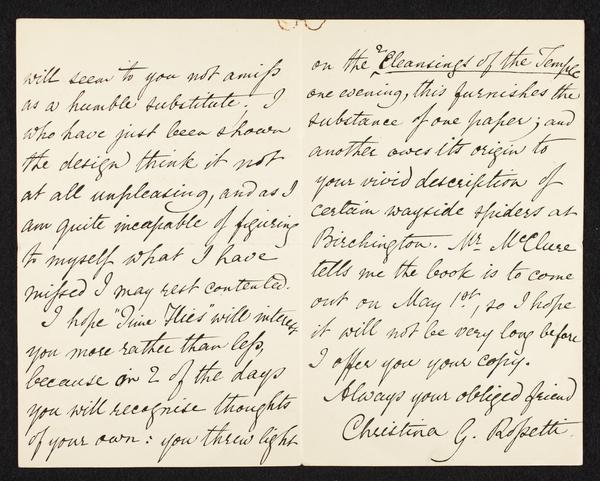 will seem to you not amiss
as a humble substitute. I
who have just been shown
the design think it not
at all unpleasing, and as I
am quite incapable of figuring
to myself what I have
missed I may rest contented.
I hope "Time Flies" will interest
you more rather than less,
because in 2 of the days
you will recognise thoughts
of your own: you threw light
on the 2 Cleansings of the Temple
one evening, this furnishes the
substance of one paper; and
another owes its origin to
your vivid description of
certain wayside spiders at
Birchington. Mr. McClure
tells me the book is to come
out on May 1st, so I hope
it will not be very long before
I offer you your copy.
Always your obliged friend
Christina G. Rossetti.